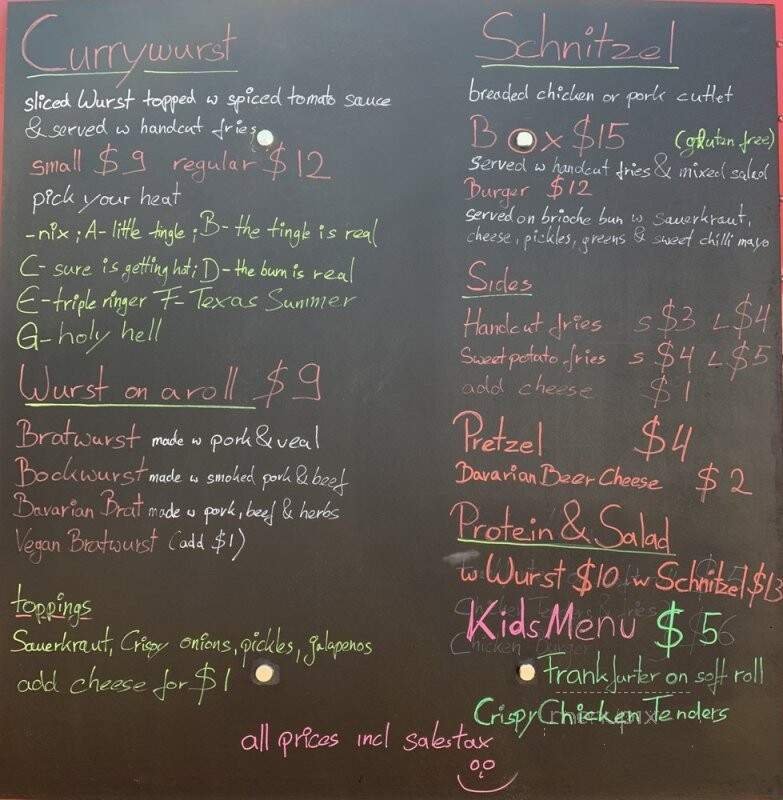 Currywurst
sliced Wurst topped w spiced tomato sauce
& served w handcut fries
small $9 regular $12
pick your heat
-nix; A-little tingle; B-the tingle is real
C-sure is getting hot; D-the burn is real
E-triple ringer F-Texas Summer
G-holy hell
Wurst on a roll $9
Bratwurst made w pork & veal
Bockwurst made w smoked pork & beef
Bavarian Brat made w pork, beef & herbs
Vegan Bratwurst (add $1)
toppings
Sauerkraut, Crispy onions, pickles, jalapenos
add cheese for $1
Schnitzel
breaded chicken or pork cutlet
Box $15 (gluten free)
served w handcut fries & mixed salad
Burger $12
served on brioche bun w sauerkraut,
cheese, pickles, greens & sweet chilli mayo
Sides
Handcut fries S $3 L $4
Sweet potato fries S $4 L $5
add cheese $1
Pretzel $4
Bavarian Beer Cheese $2
Protein & Salad
w Wurst $10 w Schnitzel $13
Kids Menu $5
Frankfurter on soft roll
Crispy Chicken Tenders
all prices incl salestax